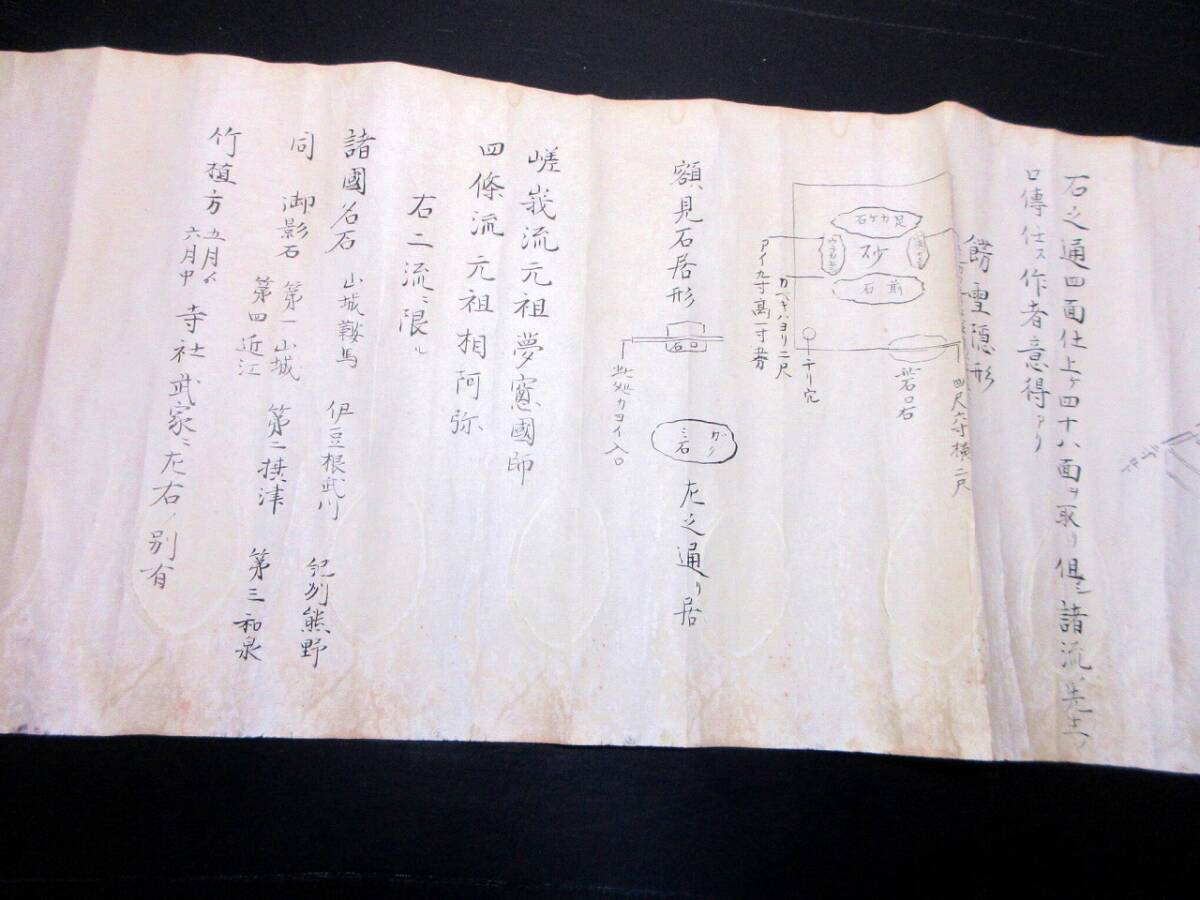 石之通四面仕上ケ四十八面ヲ取リ但シ諸流ノ先
口傳仕ス作者意得アリ
餝雪隠形
四尺六寸横二尺
石口右
チリ穴
足カケ石
砂
前石
カベキハヨリ二尺
アイ九寸高一寸
額見石居形
石口
此処カヨイ入口
ガクミ石
左之通リ居
嵯峩流元祖夢窓國師
四條流元祖相阿弥
右二流ニ限ル
諸國名石 山城鞍馬 伊豆根武川 紀刕熊野
同 御影石 第一山城 第二摂津 第三和泉
第四近江
竹植方 五月 六月中 寺社武家ニ左右ノ別有